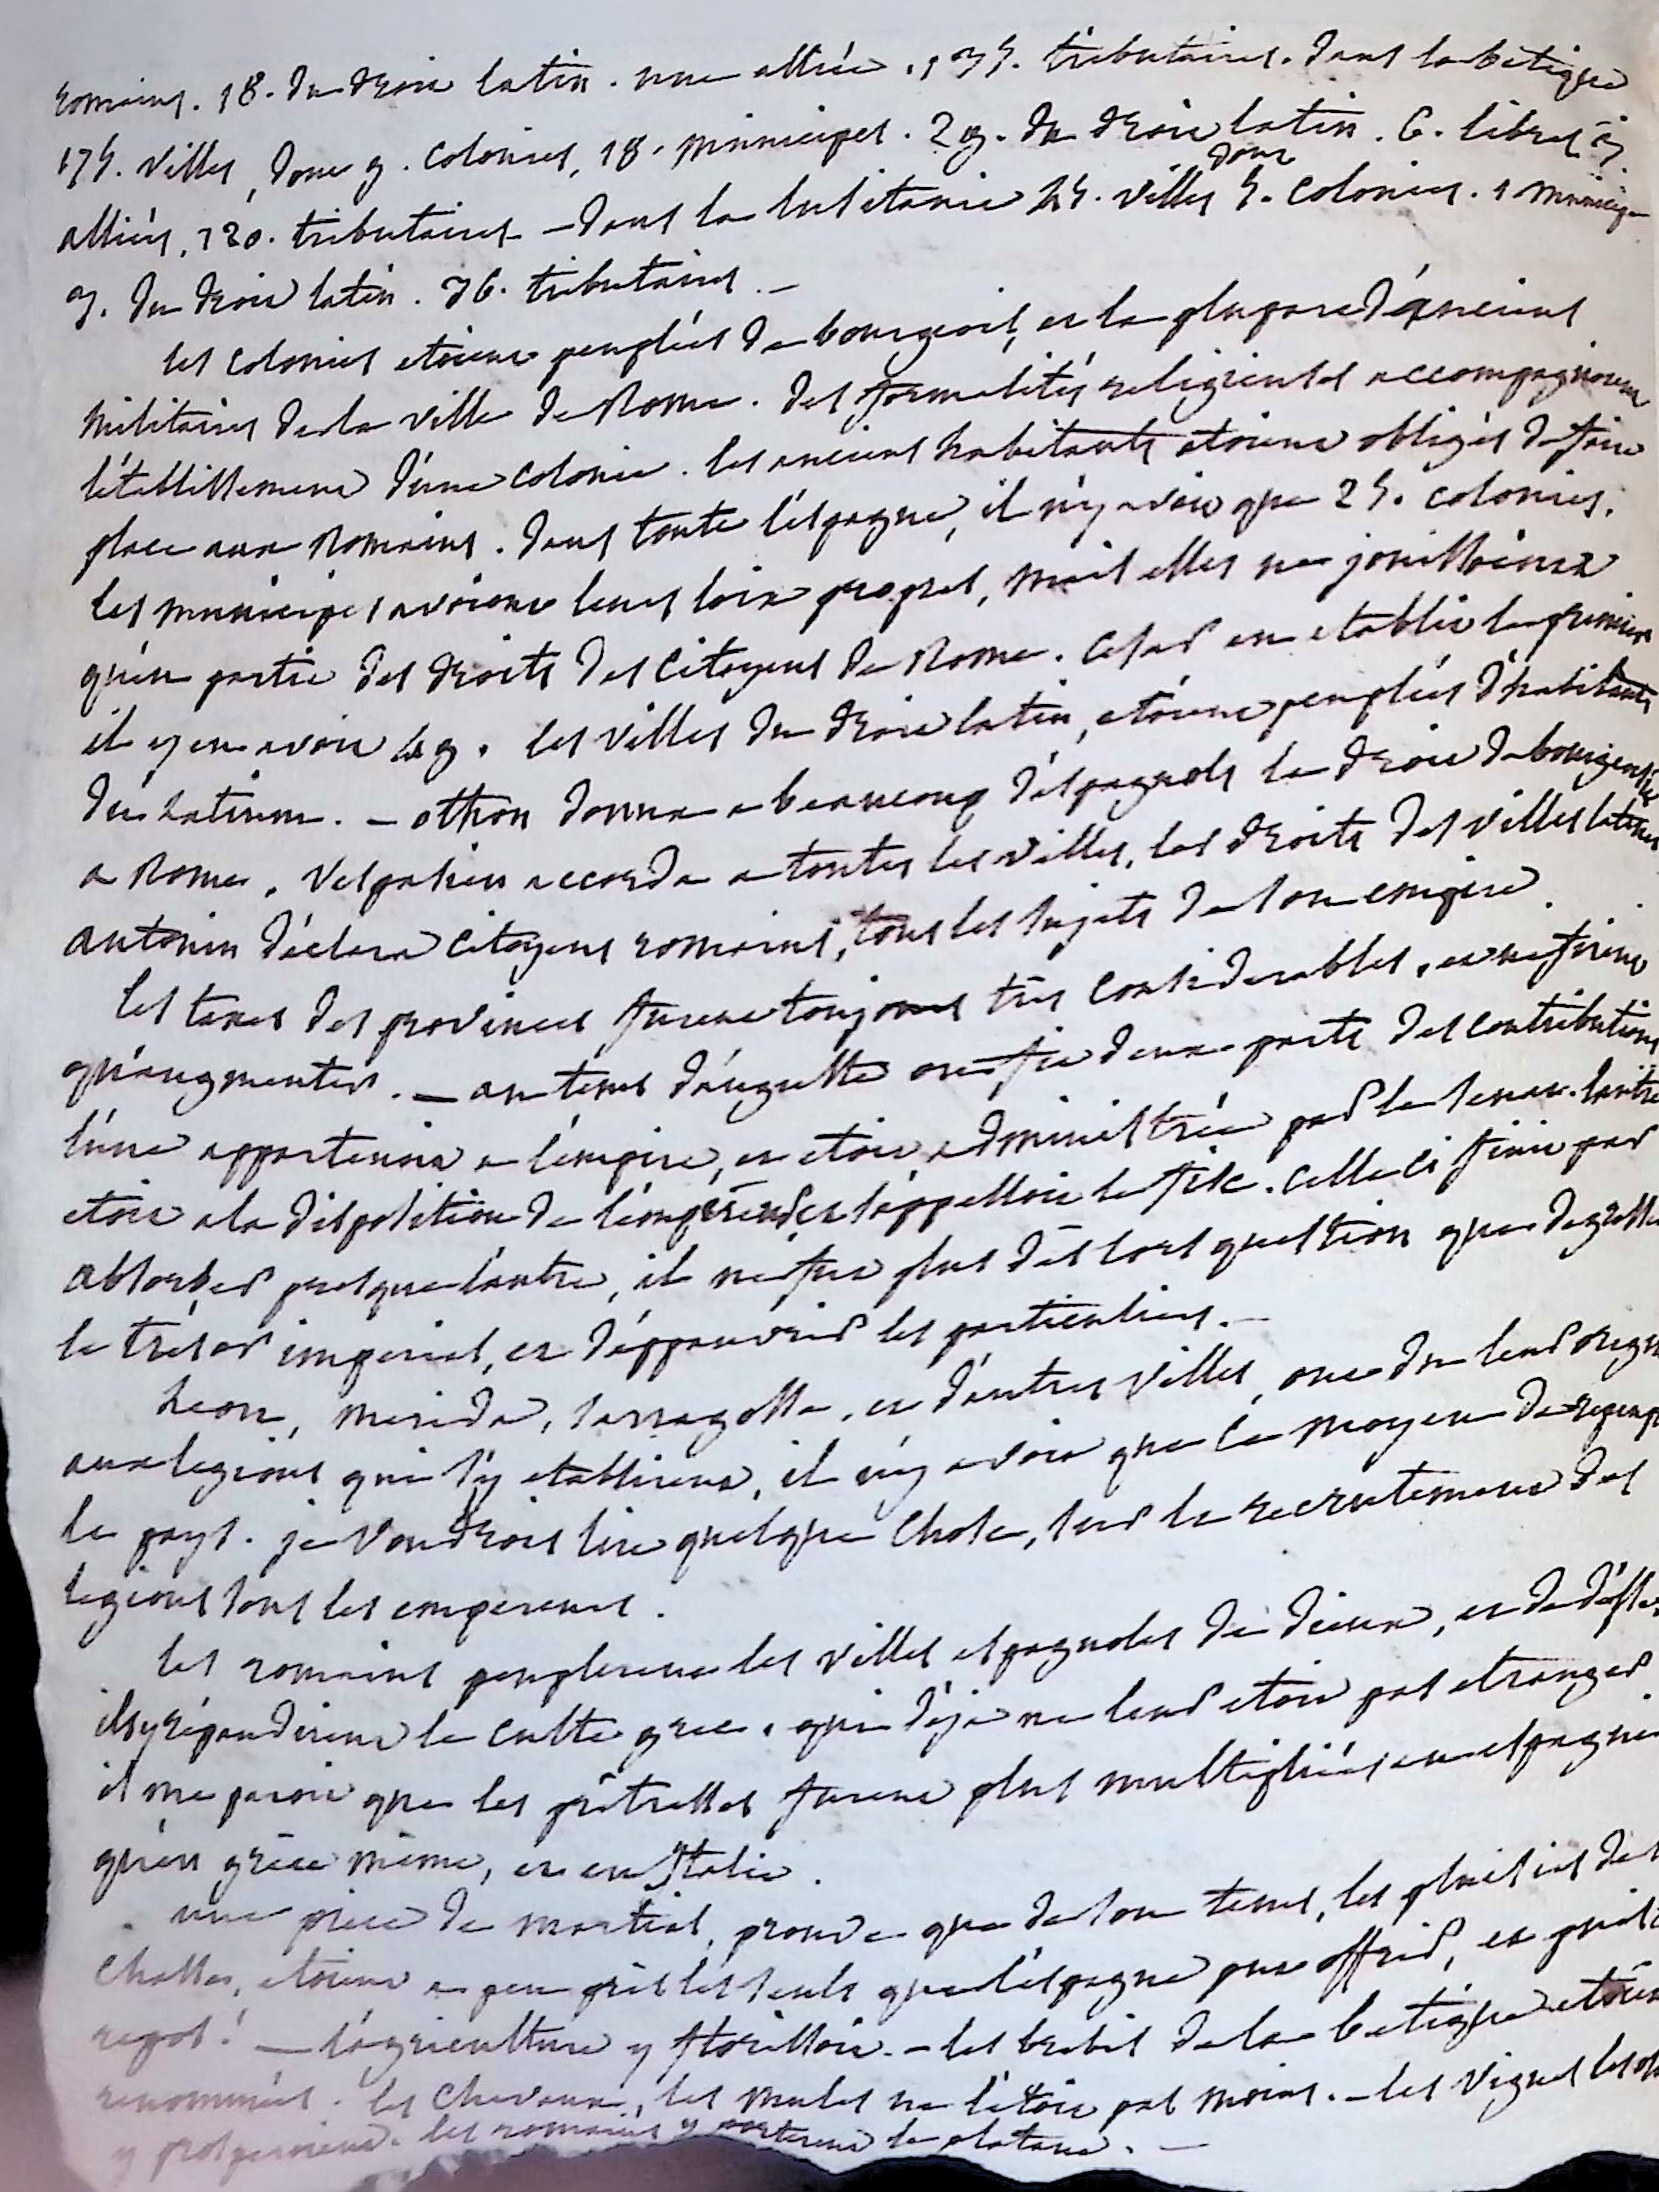 romains. 18. du droit latin. une alliée. 135. tributaires. dans la betique
175. villes, dont 9. colonies, 18. municipes. 29. du droit latin. 6. libres. 3.
alliés, 120. tributaires – dans la lusitanie 45. villes dont 5. colonies. 1 municipe
3. du droit latin. 36. tributaires. –
les colonies etoient peuplées de bourgeois, et la plupart d'anciens
militaires de la ville de Rome. des formalités religieuses accompagnoient
l'etablissement d'une colonie. les anciens habitants etoient obligés de faire
place aux Romains. dans toute l'espagne, il n'y avoit que 25. colonies.
les municipes avoient leurs loix propres, mais elles ne jouissoient
qu'en partie des droits des citoyens de Rome. Cesar en etablit le premier
il y en avoit 49. les villes du droit latin, etoient peuplées d'habitants
du Latium. – othon donna a beaucoup d'espagnols le droit de bourgeoisie
a Rome. Vespasien accorda a toutes les villes, les droits des villes latines
antonin déclara citoyens romains, tous les sujets de son empire.
les taxes des provinces furent toujours très considerables, et ne firent
qu'augmenter. – au tems d'auguste on fit deux parts des contributions
l'une appartenoit a l'empire, et etoit administrée par le senat. l'autre
etoit a la disposition de l'empereur et s'appelloit le fisc. celle ci finit par
absorber presque l'autre, il ne fut plus dès lors question que de grossir
le trésor imperial, et d'appauvrir les particuliers. –
Leon, merida, sarragosse, et d'autres villes, ont du leur origine
aux legions qui s'y etablirent, il n'y avoit que ce moyen de repeupler
le pays. je voudrois lire quelque chose, sur le recrutement des
legions sous les empereurs.
les romains peuplerent les villes espagnoles de dieux, et de
ils y répandirent le culte grec. qui déja ne leur etoit pas etranger
il me paroit que les prêtresses furent plus multipliées en espagne
qu'en grèce même, et en Italie.
une pièce de martial, prouve que de son tems, les plaisirs de la
chasse, etoient a peu près les seuls que l'espagne put offrir, et puis le
repos! – l'agriculture y florissoit. – les brebis de la betique etoient
renommées. les chevaux, les mules ne l'etoit pas moins. – les vignes les
y prosperoient. les romains y porterent le platane. –